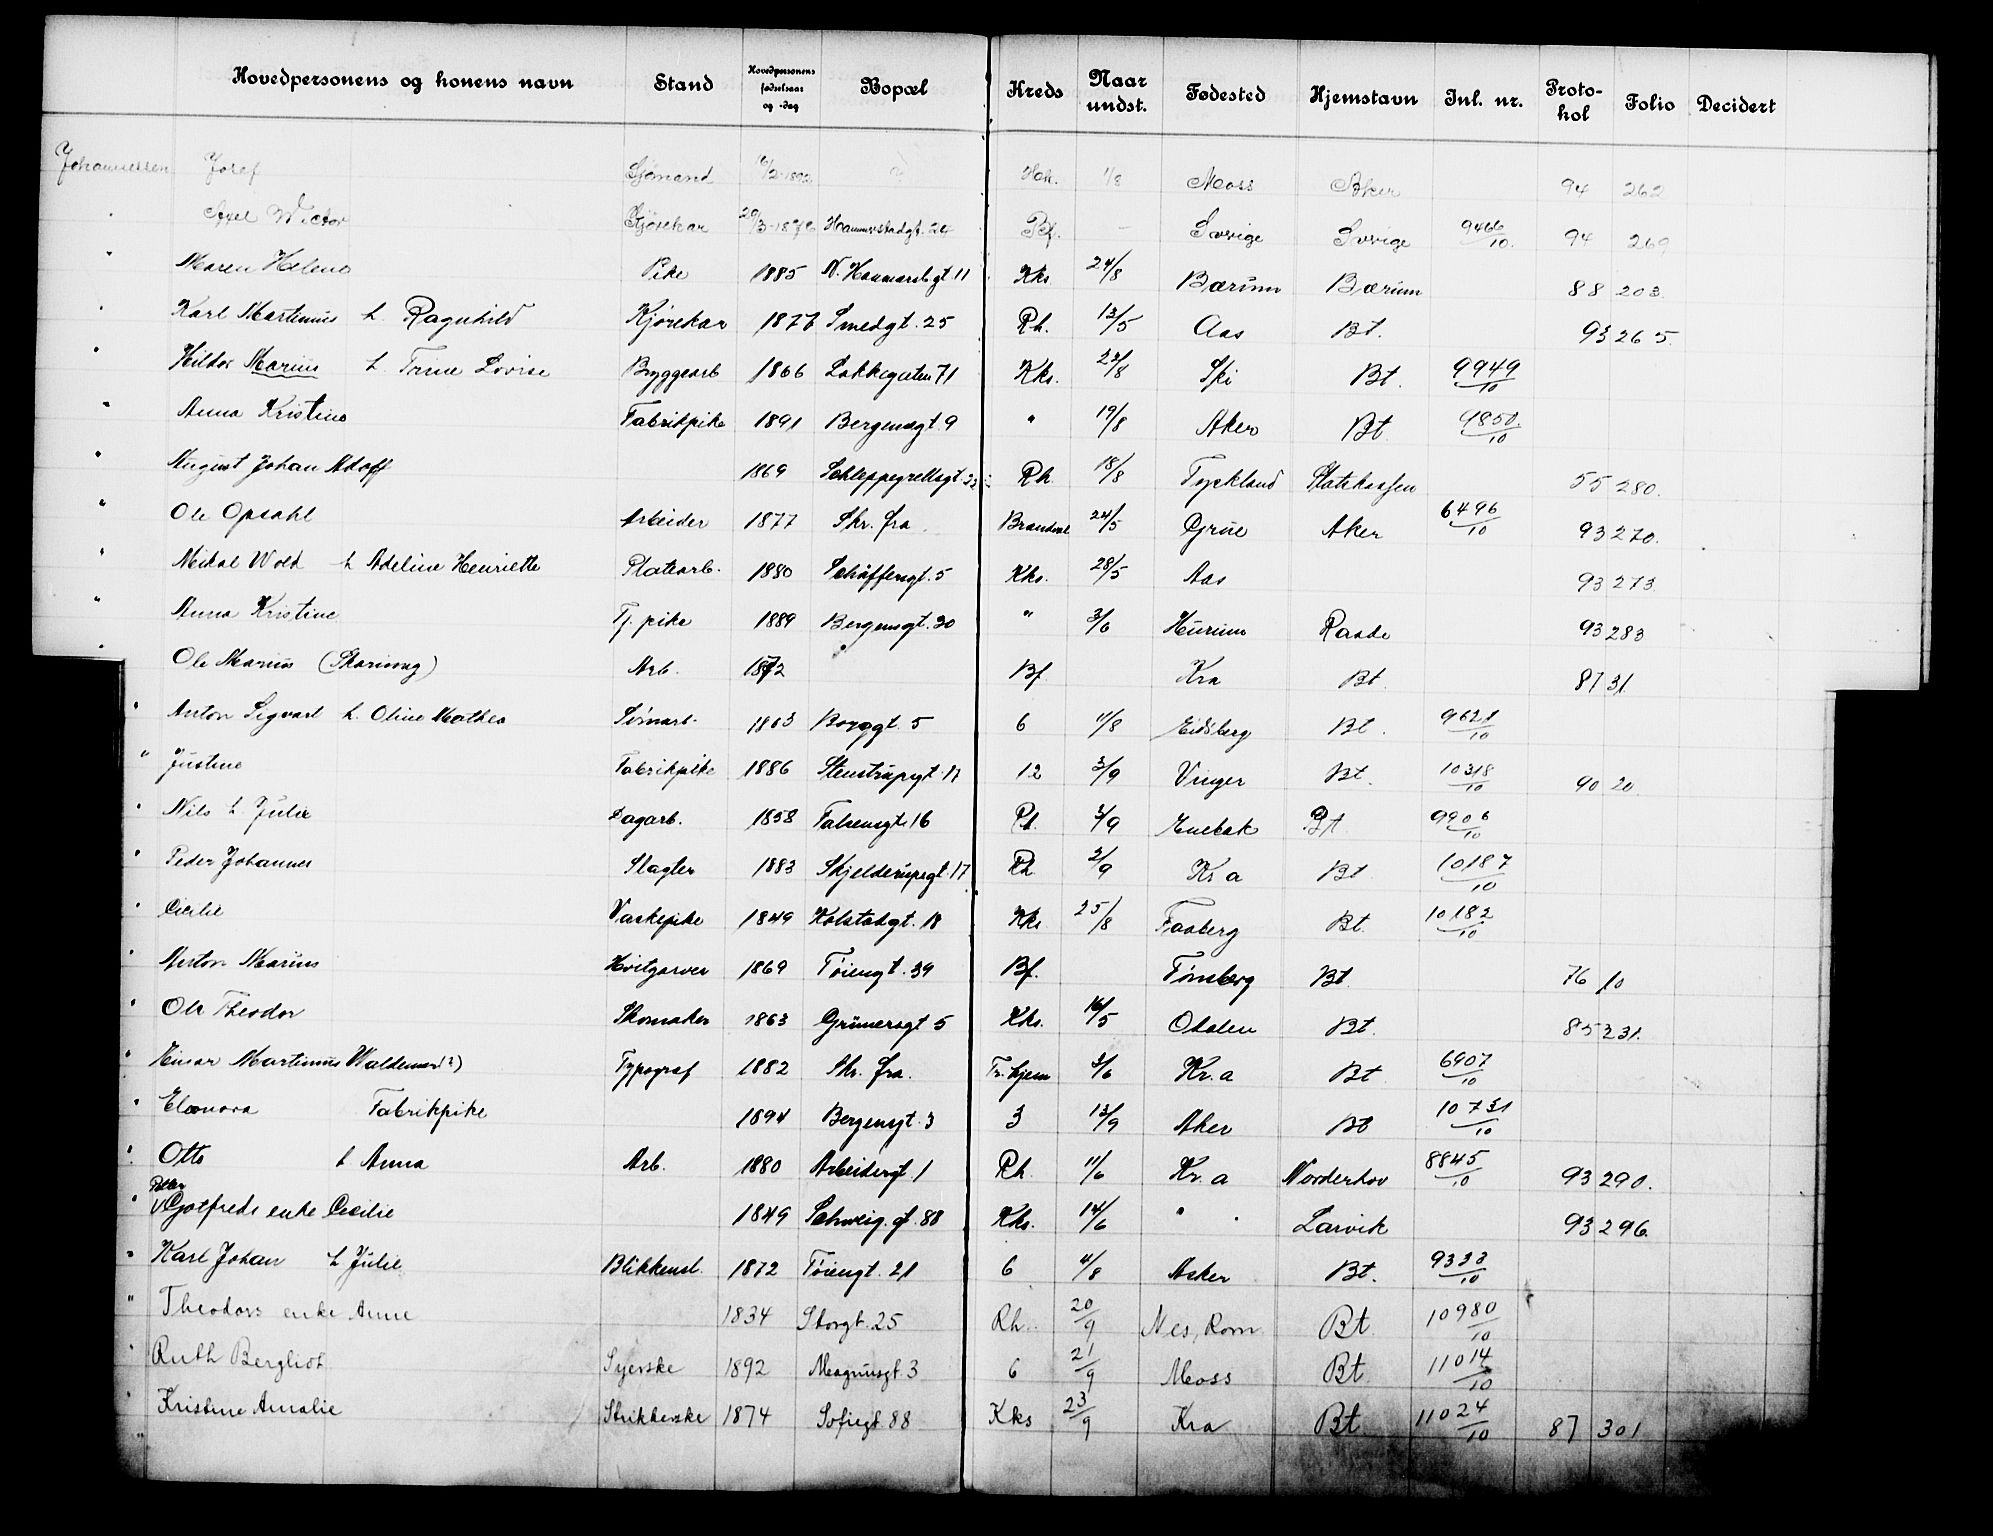 Hovedpersonens og konens navn Stand Hovedpersonens fødselsaar og -dag Bopæl Kreds Naar undst. Fødested Hjemstavn Inl. nr. Protokol Folio Decidert
Johannessen Josef Sjømand 16/2-1892 1/8 Moss Aker 94 262
" Axel Wictor Kjørekar Hammerstadgt. 24 Bf. - Sverige Sverige 9466/10. 94 269
" Maren Helene Pike 1885 N. Hammersb.gt 11 Kks. 24/8 Bærum Bærum 88 203
" Karl Martinius h. Ragnhild Kjørekar 1877 Smedgt. 25 Rh. 13/5 Aas Bt. 93 265.
" Hildor Marius h. Trine Lovise Bryggearb 1866 Lakkegaten 71 Kks. 23/8 Ski Bt. 9949/10
" Anna Kristine Fabrikpike 1891 Bergensgt. 9 " 19/8 Aker Bt. 9850./10
" August Johan Adolf 1869 Schleppegrellsgt. 22 Rh 18/8 Tyskland Statskassen 55 280.
" Ole Opsahl Arbeider 1877 Skr. fra Brandval 24/5 Grue Aker 6496/10 93 270.
" Mikal Wold h Adeline Henriette Platearb. 1880 Schäffersgt. 5 Kks. 28/5 Aas 93 273.
" Anna Kristine Tj. pike 1889 Bergensgt. 30 " 3/6 Hurum Raade 93 283
" Ole Marius Arb. 1872 Bf Kra Bt. 87 31.
" Anton Sigvart h. Oline Mathea 1863 Borggt. 5 6 11/8 Eidsberg Bt. 9621/10
" Justine Fabrikpike 1886 Stenstrupsgt. 17 12 3/9 Vinger Bt. 10318/10 90 20.
" Nils h. Julie Dagarb. 1858 Falsensgt. 16 Rh. 3/9 Enebak Bt. 9906/10
" Peder Johannes Slagter 1883 Skjelderupsgt. 17 Rh 2/9 Kr a Bt 10187/10
" Cecilie Vaskepike 1849 Kolstadgt. 18 Kks 25/8 Faaberg Bt. 10182/10
" Anton Marius Hvitgarver 1869 Tøiengt. 39 Bf. Tønsberg Bt. 76 10
" Ole Theodor Skomaker 1863 Grünersgt 5 Kks. 16/5 Odalen Bt. 85 231.
" Einar Martinius Waldemar (?) Typograf 1882 Skr. fra. Tr. hjem 3/6 Kr. a Bt 6907/10
" Eleonora Fabrikpike 1894 Bergensgt. 3 3 13/9 Aker Bt 10731/10
" Otto h Anna Arb. 1880 Arbeidergt. 1 Rh. 11/6 Kr. a Norderhov 8845/10 93 290.
Petter
" Gotfreds enke Cecilie 1849 Schweig. gt. 88 Kks. 14/6 " . Larvik 93 296.
" Karl Johan h Julie Blikkensl. 1872 Tøiengt. 21 6 11/8 Asker Bt. 9333/10
" Theodors enke Anne 1834 Storgt. 25 Rh. 20/9 Nes, Rom. Bt. 10980/10
" Ruth Bergliot Syerske 1892 Magnusgt. 3 6 21/9 Moss Bt. 11014/10
" Kristine Amalie Strikkerske 1874 Sofiegt. 88 Kks 23/9 Kra Bt. 11024/10 87 301
"